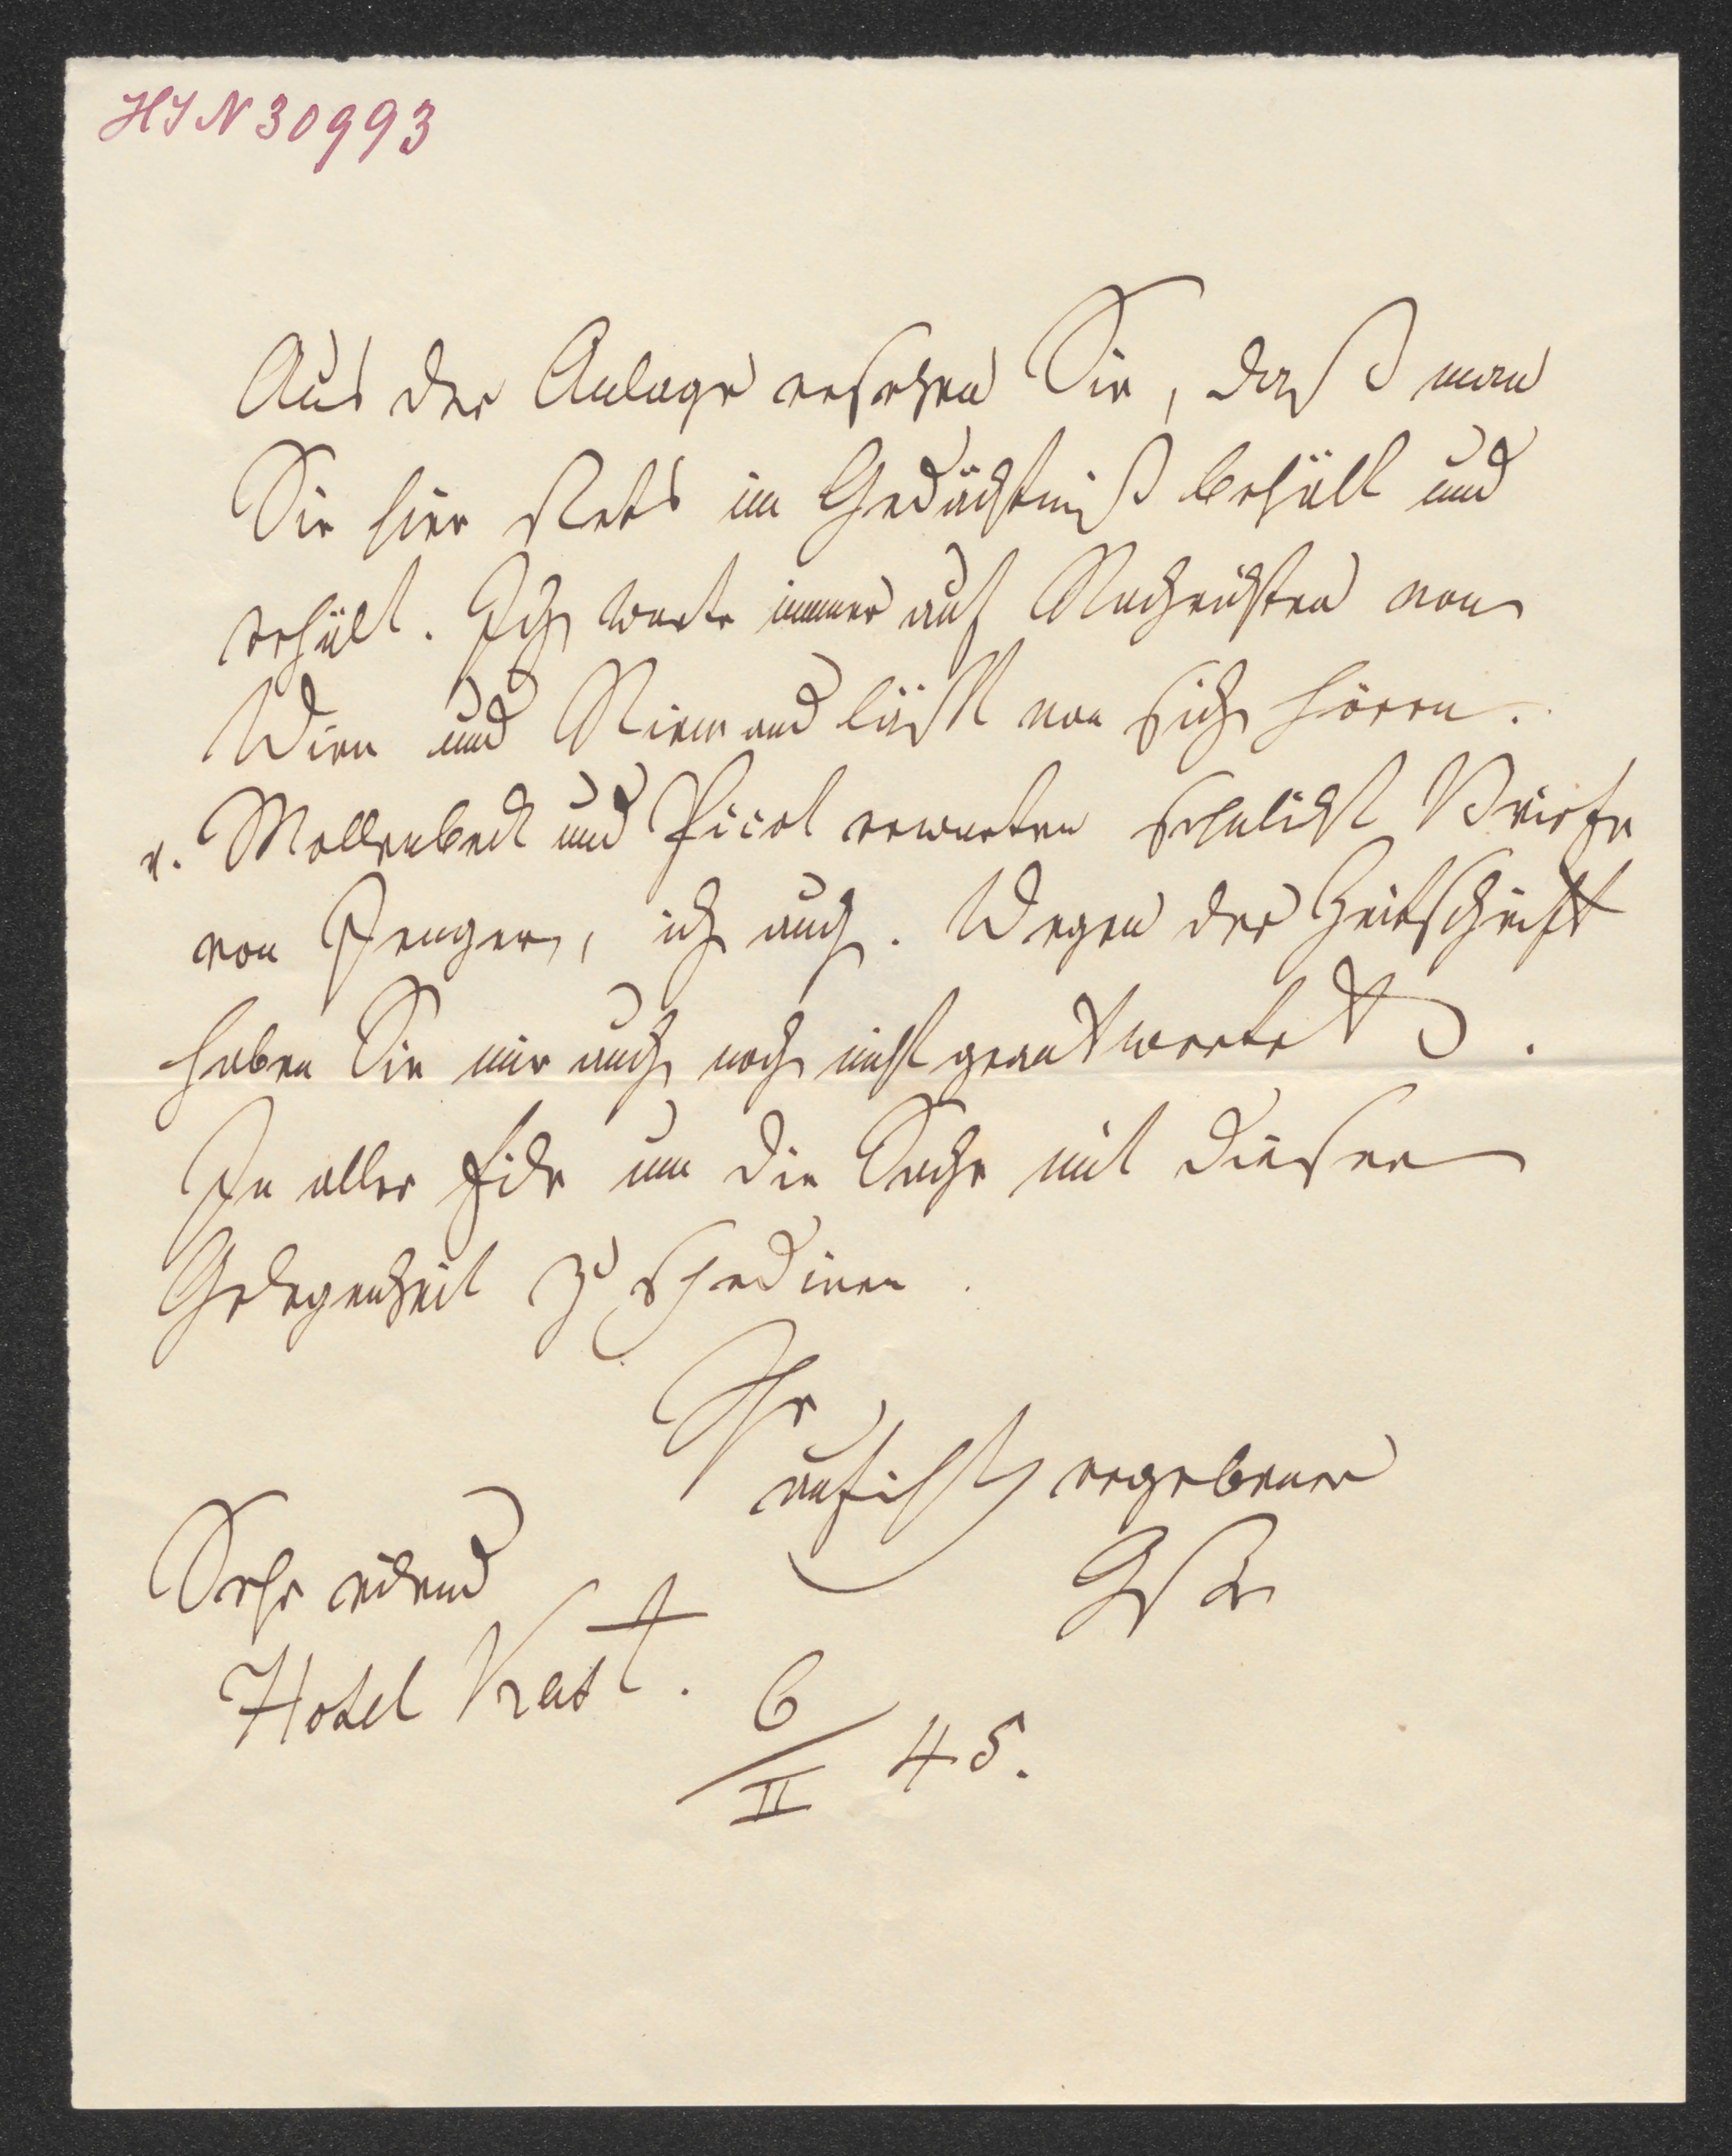 HIN 30993
Aus der Anlage ersehen Sie, daß man
Sie hier stets im Gedächtniß behält und
erhält. Ich warte immer auf Nachrichten von
Wien und Niemand läßt von sich hören.
v. Mollenbeck und Picol erwarten sehnlichst Briefe
von Prenger, ich auch. Wegen der Zeitschrift
haben Sie mir auch noch nicht geantwortet.
In aller Eile um die Sache mit dieser
Gelegenheit zu spediren.
Ihr
aufricht. ergebener
Sehr eilend
Hotel Rast.
6/II 45.